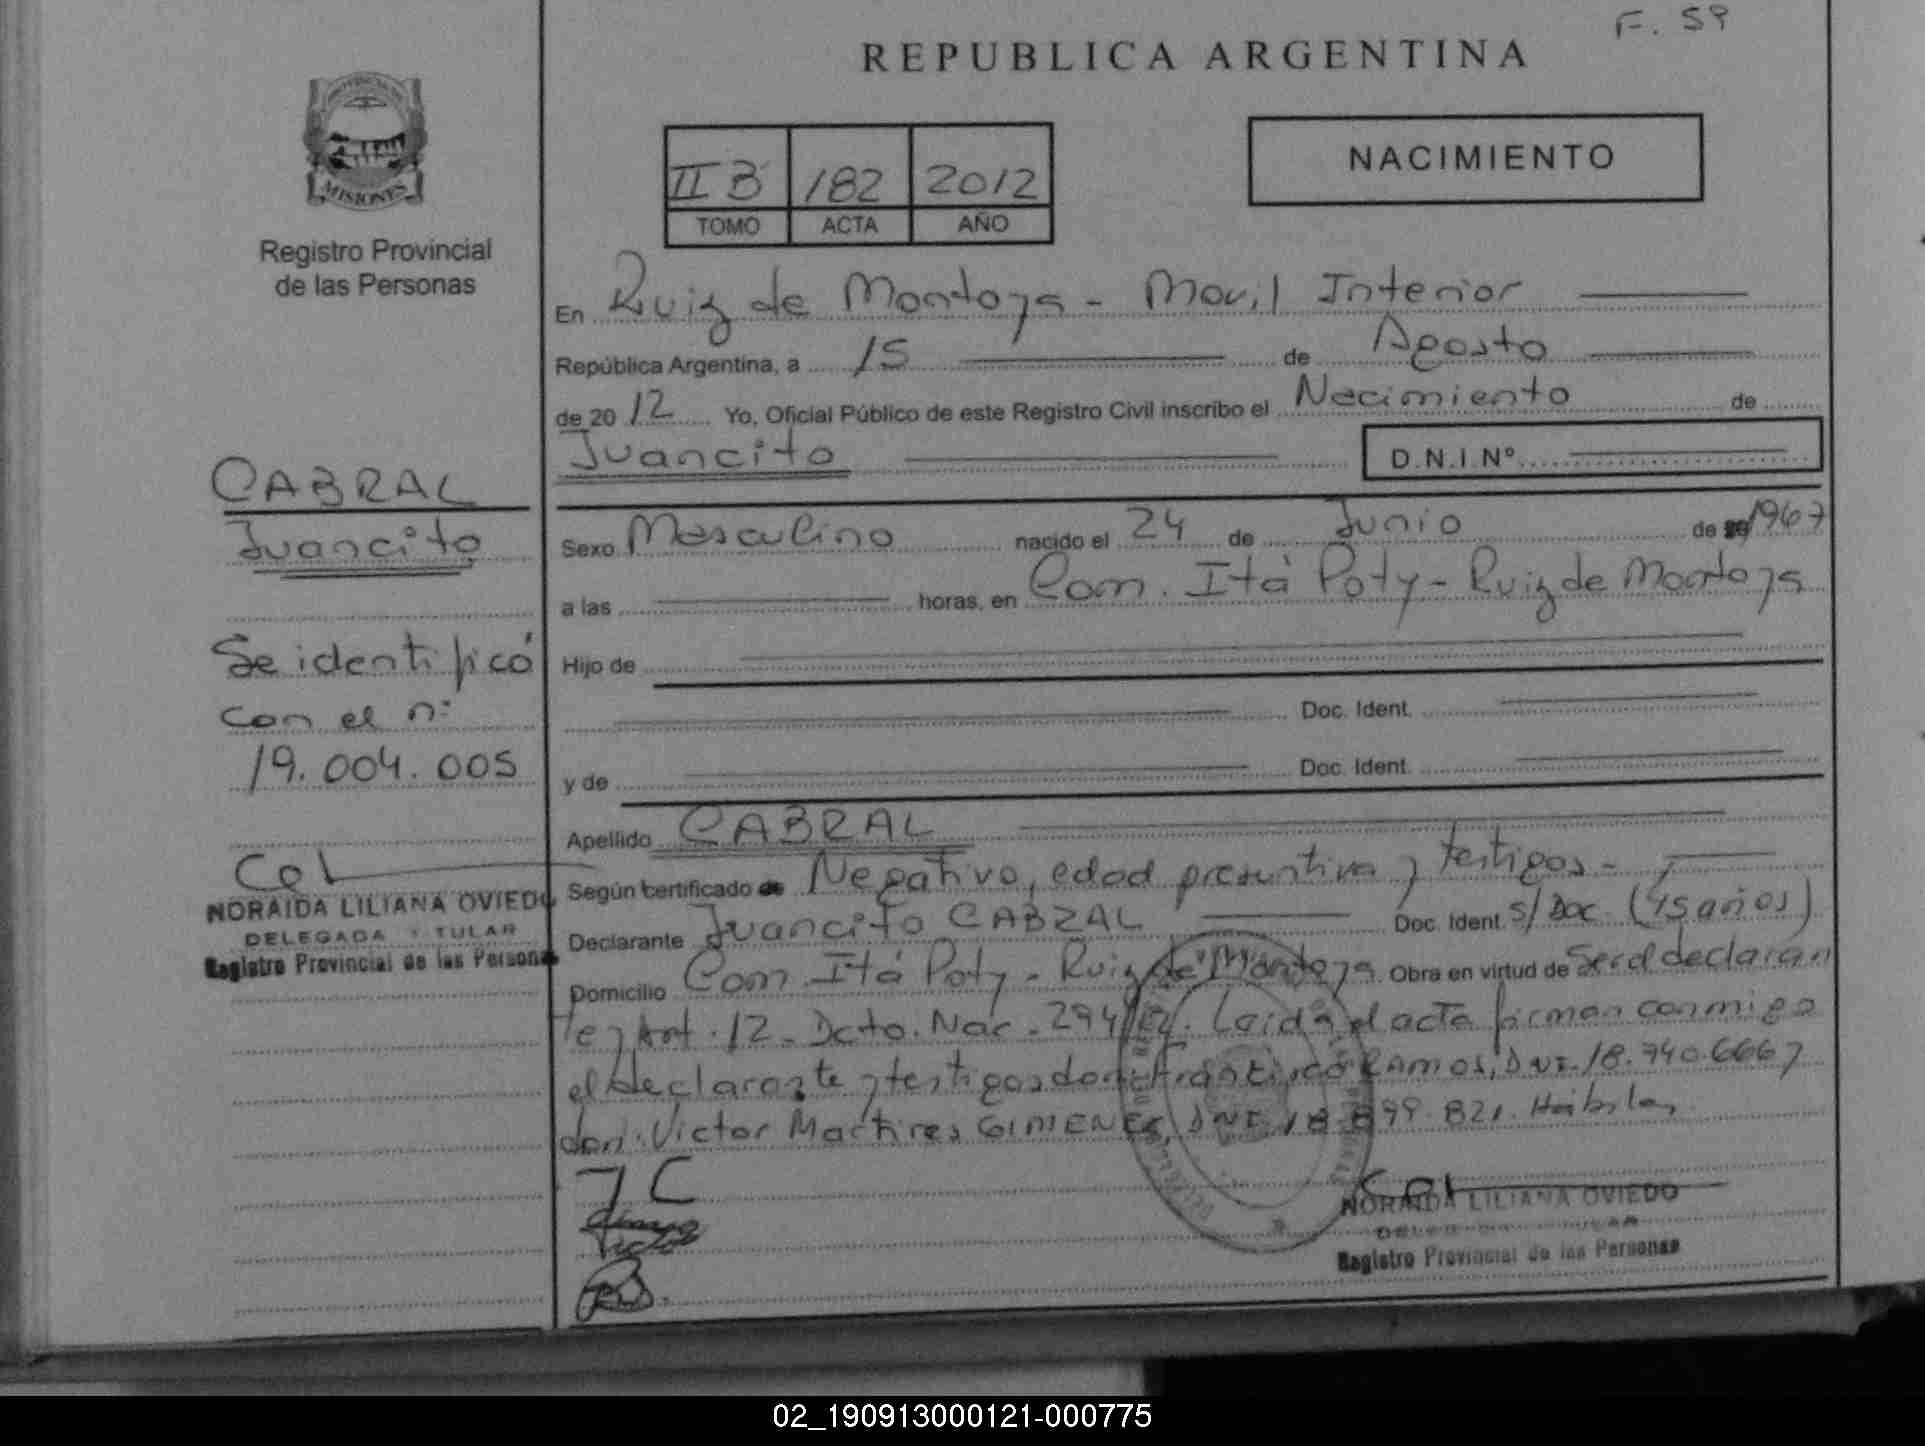 F. 59
REPUBLICA ARGENTINA
NACIMIENTO
II B 182 2012
TOMO ACTA AÑO
MISIONES
Registro Provincial
de las Personas
En Ruiz de Montoya - Movil Interior
República Argentina, a 15 de Agosto
de 2012 Yo, Oficial Público de este Registro Civil inscribo el Nacimiento de
Juancito D.N.I.Nº
CABRAL
Juancito
Se identificó
con el nº
19.004.005
Col
NORAIDA LILIANA OVIEDO
DELEGADA TITULAR
Registro Provincial de las Personas
Sexo Masculino nacido el 24 de Junio de 1967
a las horas, en Com. Itá Poty - Ruiz de Montoya
Hijo de
Doc. Ident.
y de Doc. Ident.
Apellido CABRAL
Según certificado de Negativo, edad presuntiva y testigos -
Declarante Juancito CABRAL Doc. Ident. S/Doc. (45 años)
Domicilio Com. Itá Poty - Ruiz de Montoya. Obra en virtud de Ser el declaran
te y Art. 12 - Dcto. Nac. 294/12. Leída el acta firman conmigo
el declarante y testigos don Francisco RAMOS, DNI. 18.740.666 y
don. Victor Martires GIMENES, DNI 18.899.821. Hábiles
J C
Victor
NORAIDA LILIANA OVIEDO
Registro Provincial de las Personas
02_190913000121-000775